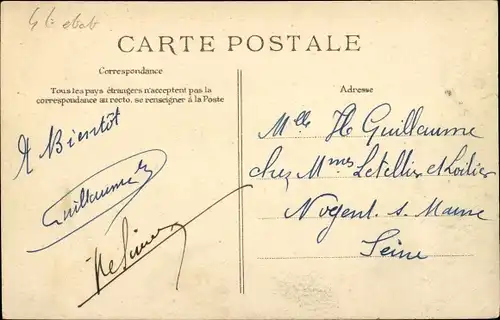 CARTE POSTALE
Correspondance
Tous les pays étrangers n'acceptent pas la
correspondance au recto, se renseigner à la Poste
Adresse
A Bientôt
Guillaume
Mlle H Guillaume
chez Mmes Letellier et
Nogent s. Marne
Seine